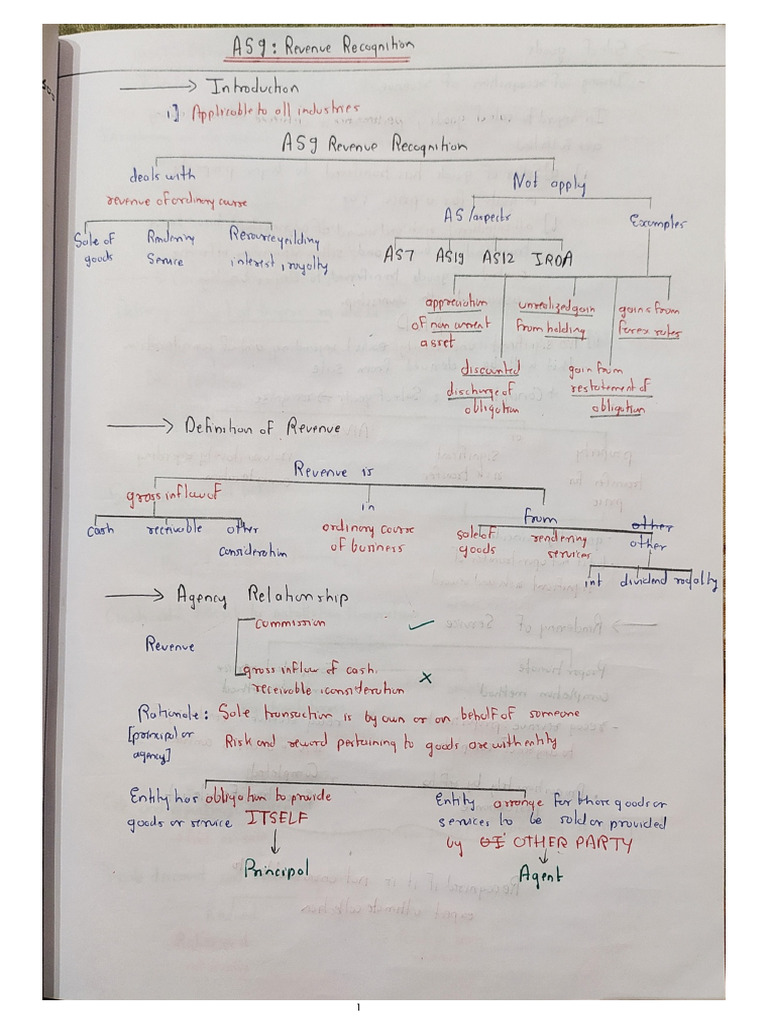 AS9: Revenue Recognition
→ Introduction
1] Applicable to all industries
AS9 Revenue Recognition
deals with
revenue of ordinary course
Sale of goods
Rendering Service
Resource yeilding interest, royalty
Not apply
AS/aspects
Examples
AS7 AS19 AS12 IRDA
appreciation
of non current
asset
unrealized gain
from holding
gains from
forex rates
discounted
discharge of
obligation
gain from
restatement of
obligation
→ Definition of Revenue
Revenue is
gross inflow of
in
from
cash receivable other
consideration
ordinary course
of business
sale of
goods
rendering
services
other
other
int dividend royalty
→ Agency Relationship
Revenue
commission ✓
gross inflow of cash, ×
receivable, consideration
Rationale: Sale transaction is by own or on behalf of someone
[principal or
agency]
Risk and reward pertaining to goods are with entity
Entity has obligation to provide
goods or service ITSELF
Principal
Entity arrange for those goods or
services to be sold or provided
by OTHER PARTY
Agent
1